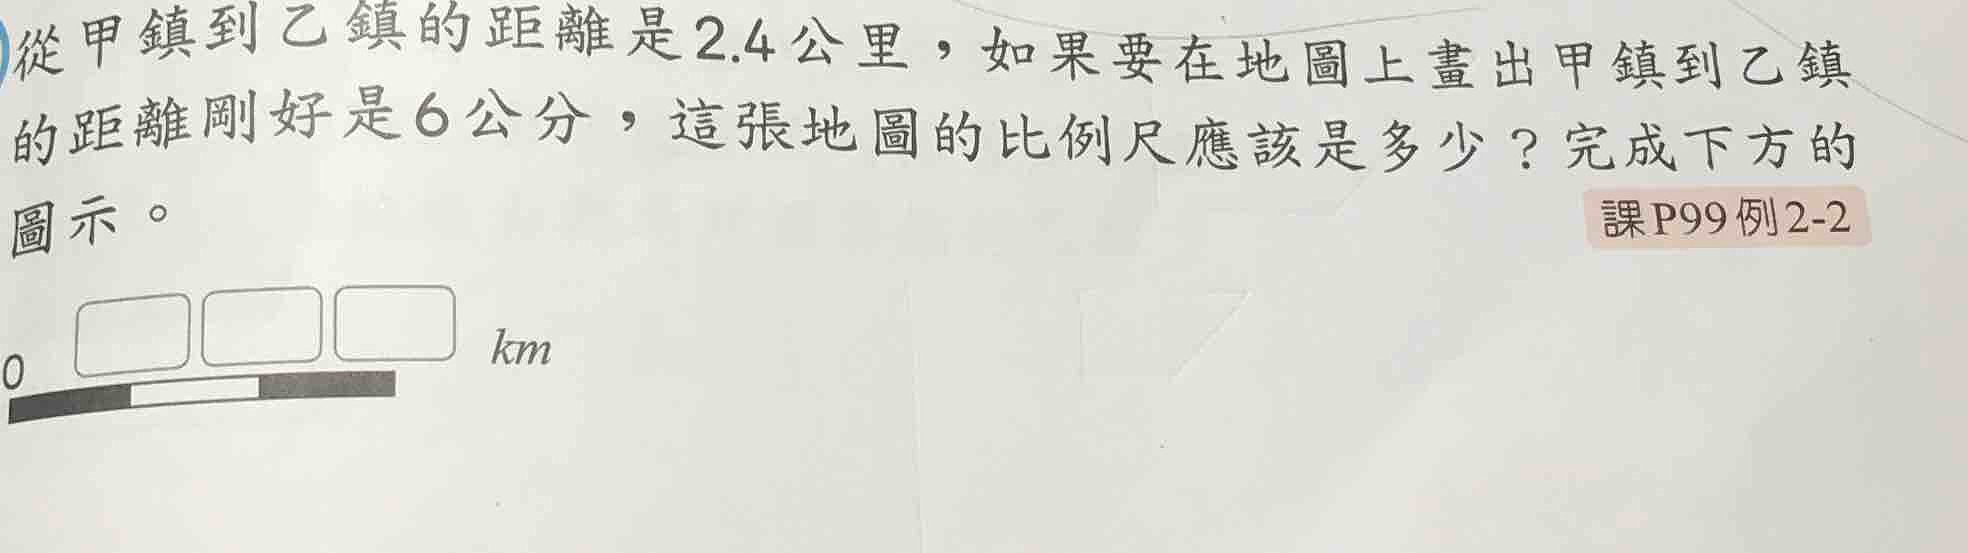 從甲鎮到乙鎮的距離是2.4公里，如果要在地圖上畫出甲鎮到乙鎮
的距離剛好是6公分，這張地圖的比例尺應該是多少？完成下方的
圖示。
課P99例2-2
0 km